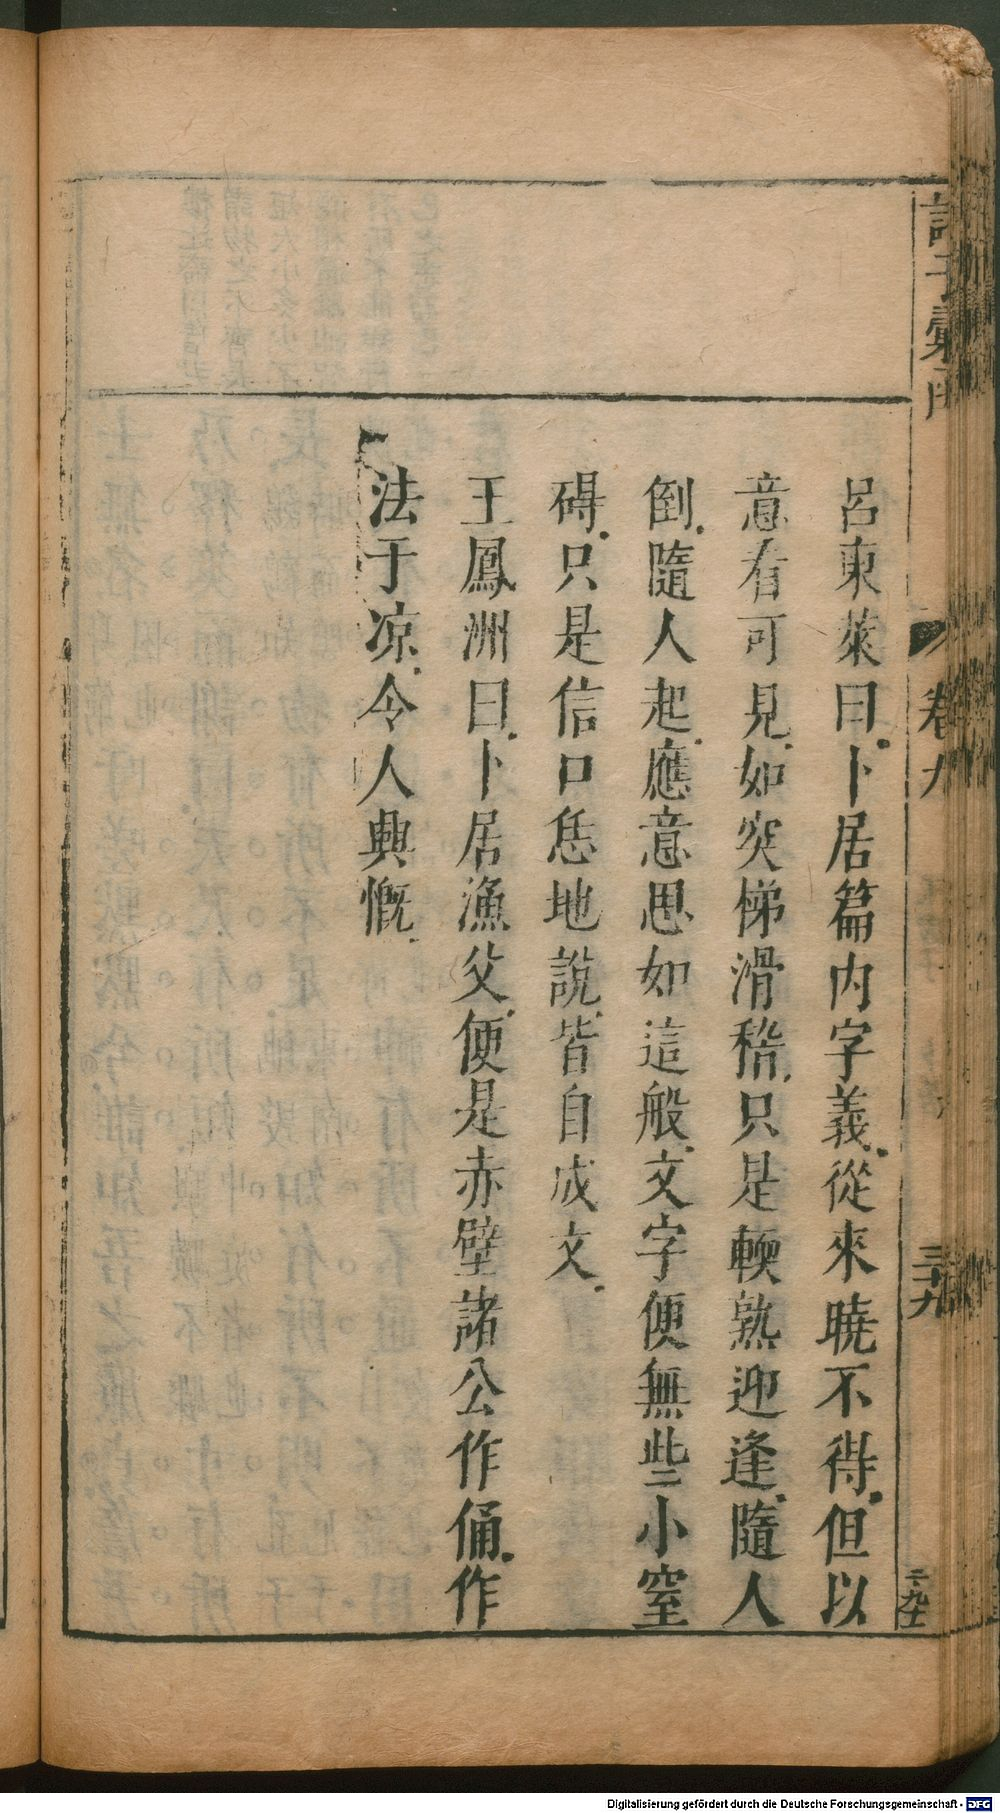 諸子彙函
卷九
三十九
呂東萊曰卜居篇内字義從來曉不得但以
意看可見如突梯滑稽只是輭熟迎逢隨人
倒隨人起應意思如這般文字便無些小窒
碍只是信口恁地說皆自成文
王鳳洲曰卜居漁父便是赤壁諸公作俑作
法于凉令人興慨
Digitalisierung gefördert durch die Deutsche Forschungsgemeinschaft - DFG